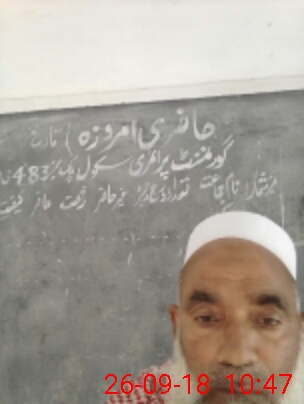 حاضری امروزہ / تاریخ
گورنمنٹ پرائمری سکول چک نمبر 483
نمبر شمار نام جماعت تعداد غیر حاضر رخصت حاضر
26-09-18 10:47